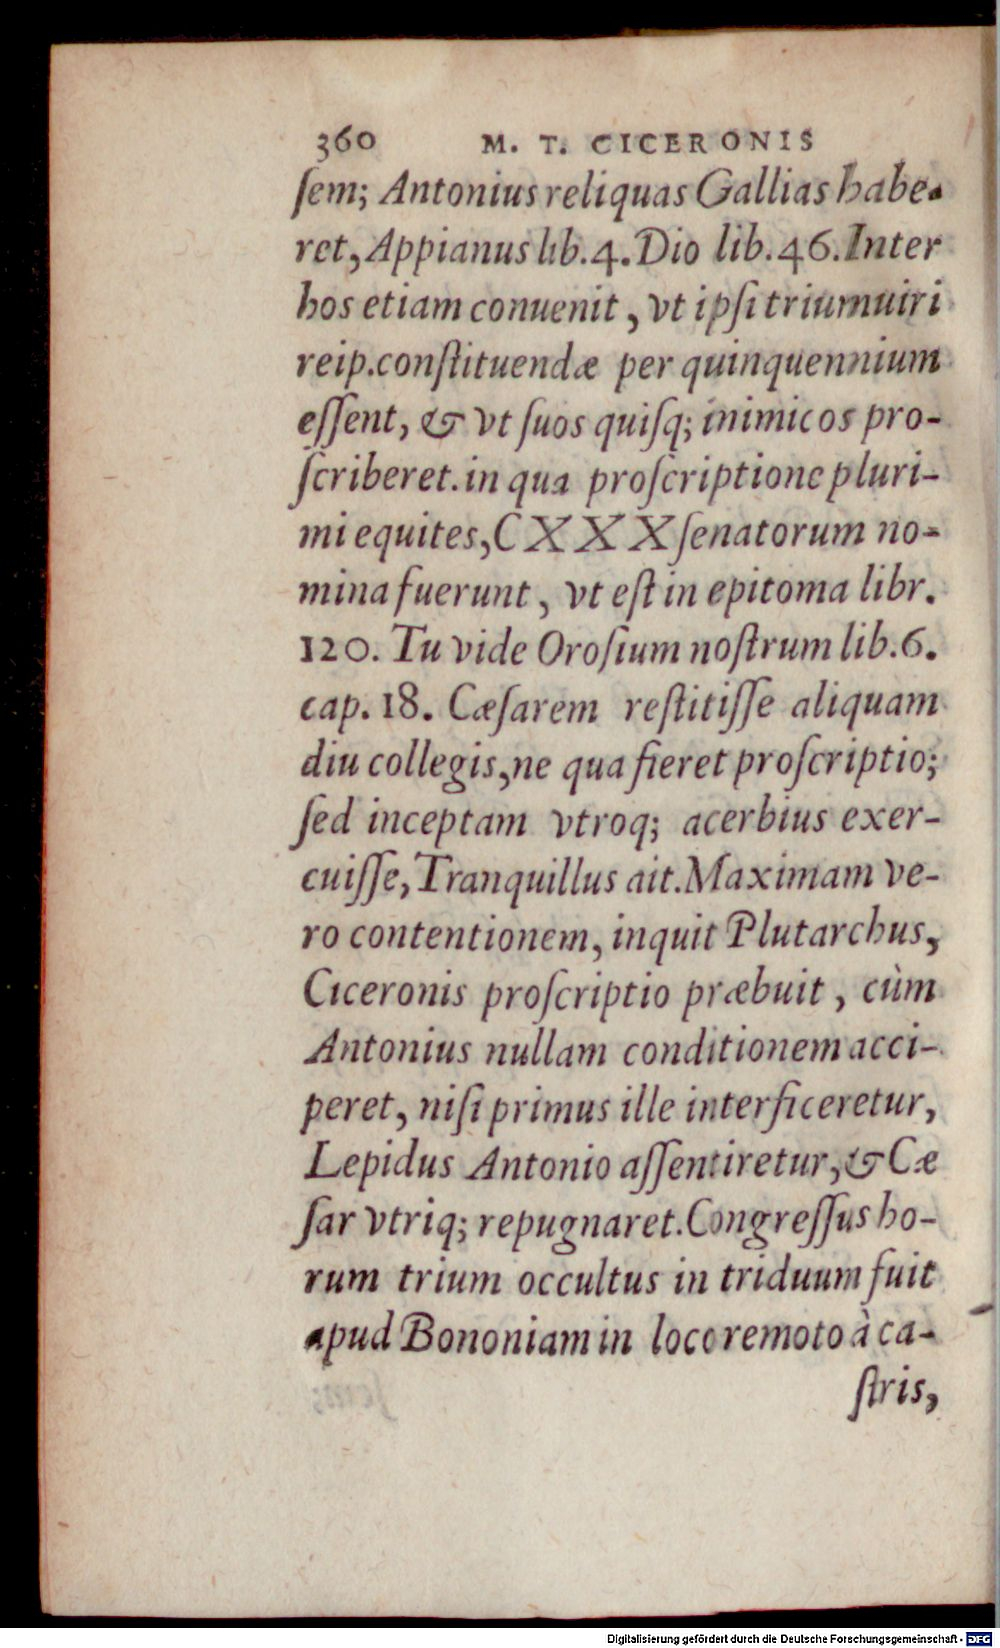 360 M. T. CICERONIS
ſem; Antonius reliquas Gallias habe-
ret, Appianus lib. 4. Dio lib. 46. Inter
hos etiam conuenit, vt ipſi triumuiri
reip. conſtituendæ per quinquennium
eſſent, & vt ſuos quiſq; inimicos pro-
ſcriberet. in qua proſcriptione pluri-
mi equites, CXXX ſenatorum no-
mina fuerunt, vt eſt in epitoma libr.
120. Tu vide Oroſium noſtrum lib. 6.
cap. 18. Cæſarem reſtitiſſe aliquam
diu collegis, ne qua fieret proſcriptio;
ſed inceptam vtroq; acerbius exer-
cuiſſe, Tranquillus ait. Maximam ve-
ro contentionem, inquit Plutarchus,
Ciceronis proſcriptio præbuit, cùm
Antonius nullam conditionem acci-
peret, niſi primus ille interficeretur,
Lepidus Antonio aſſentiretur, & Cæ
ſar vtriq; repugnaret. Congreſſus ho-
rum trium occultus in triduum fuit
apud Bononiam in loco remoto à ca-
ſtris,
Digitalisierung gefördert durch die Deutsche Forschungsgemeinschaft - DFG